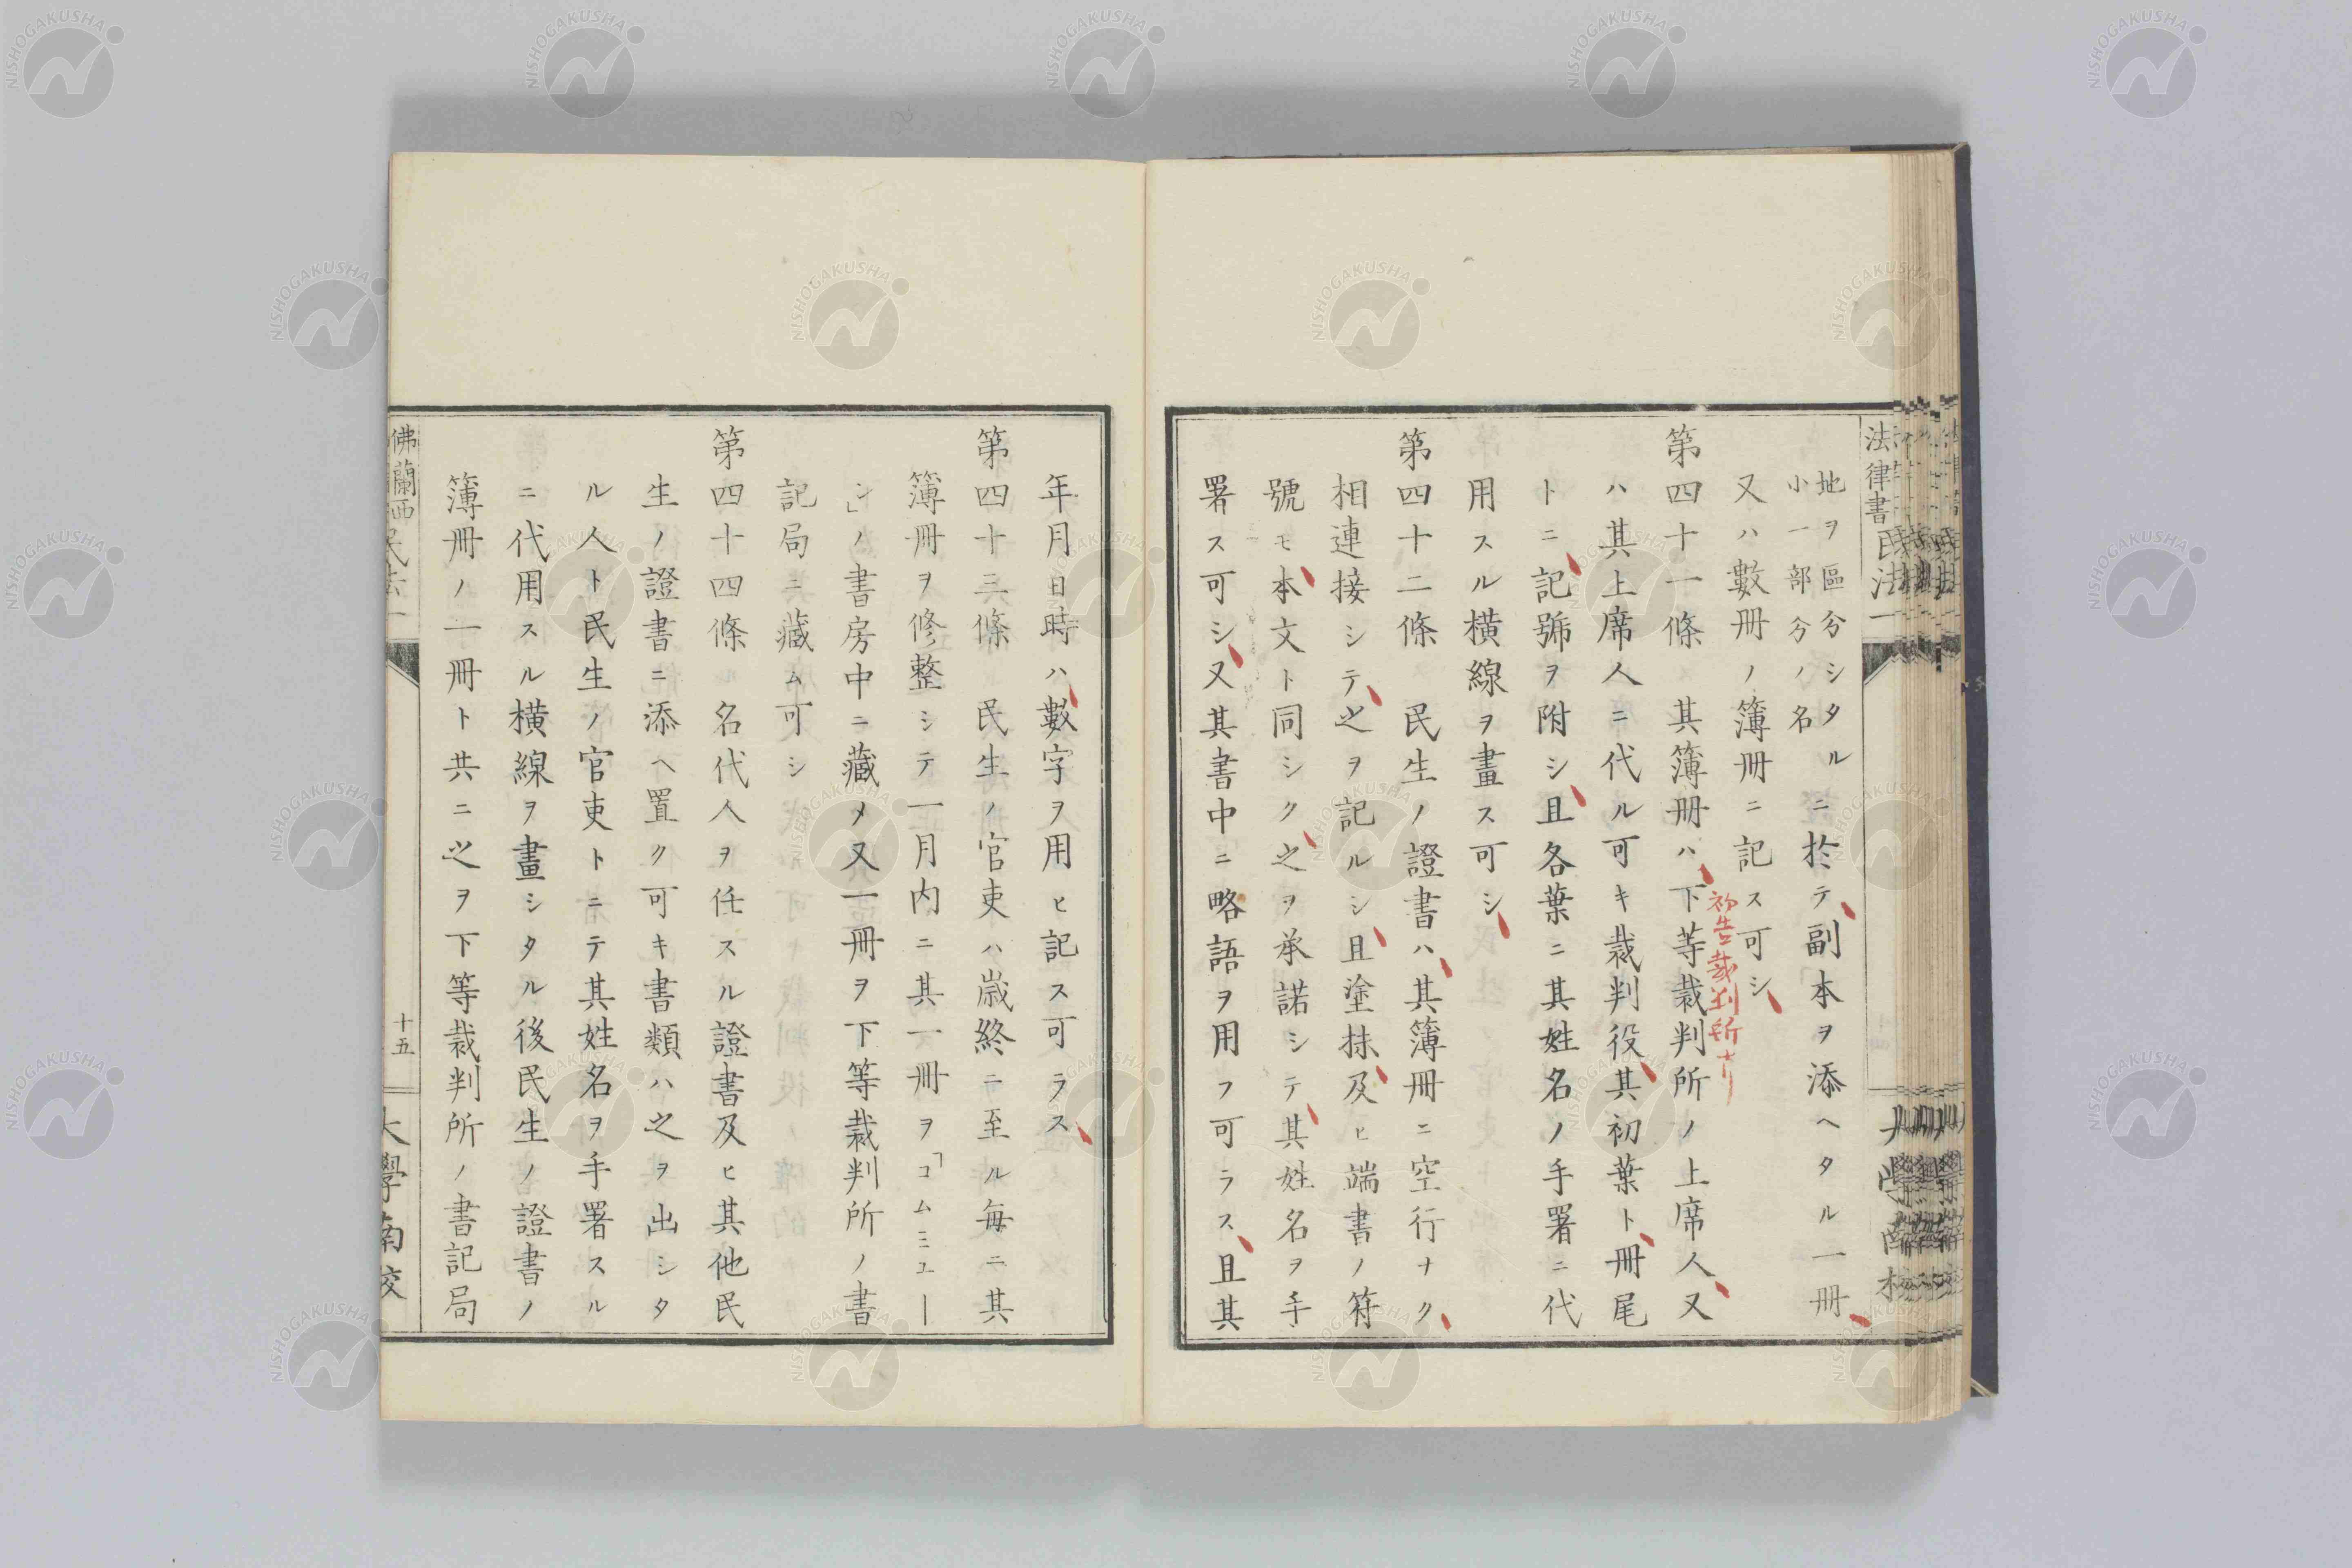 法律書民法一
地ヲ區分シタル
小一部分ノ名
ニ於テ副本ヲ添ヘタル一冊
又ハ數冊ノ簿冊ニ記ス可シ
初告裁判所ナリ
第四十一條 其簿冊ハ下等裁判所ノ上席人又
ハ其上席人ニ代ル可キ裁判役其初葉ト冊尾
トニ記號ヲ附シ且各葉ニ其姓名ノ手署ニ代
用スル横線ヲ畫ス可シ
第四十二條 民生ノ證書ハ其簿冊ニ空行ナク
相連接シテ之ヲ記ルシ且塗抹及ヒ端書ノ符
號モ本文ト同シク之ヲ承諾シテ其姓名ヲ手
署ス可シ又其書中ニ略語ヲ用フ可ラス且其
年月日時ハ數字ヲ用ヒ記ス可ラス
第四十三條 民生ノ官吏ハ歳終ニ至ル毎ニ其
簿冊ヲ修整シテ一月内ニ其一冊ヲ「コムミユー
ン」ノ書房中ニ藏メ又一冊ヲ下等裁判所ノ書
記局ニ藏ム可シ
第四十四條 名代人ヲ任スル證書及ヒ其他民
生ノ證書ニ添ヘ置ク可キ書類ハ之ヲ出シタ
ル人ト民生ノ官吏トニテ其姓名ヲ手署スル
ニ代用スル横線ヲ畫シタル後民生ノ證書ノ
簿冊ノ一冊ト共ニ之ヲ下等裁判所ノ書記局
佛蘭西民法一
十五
大學南校
NISHOGAKUSHA